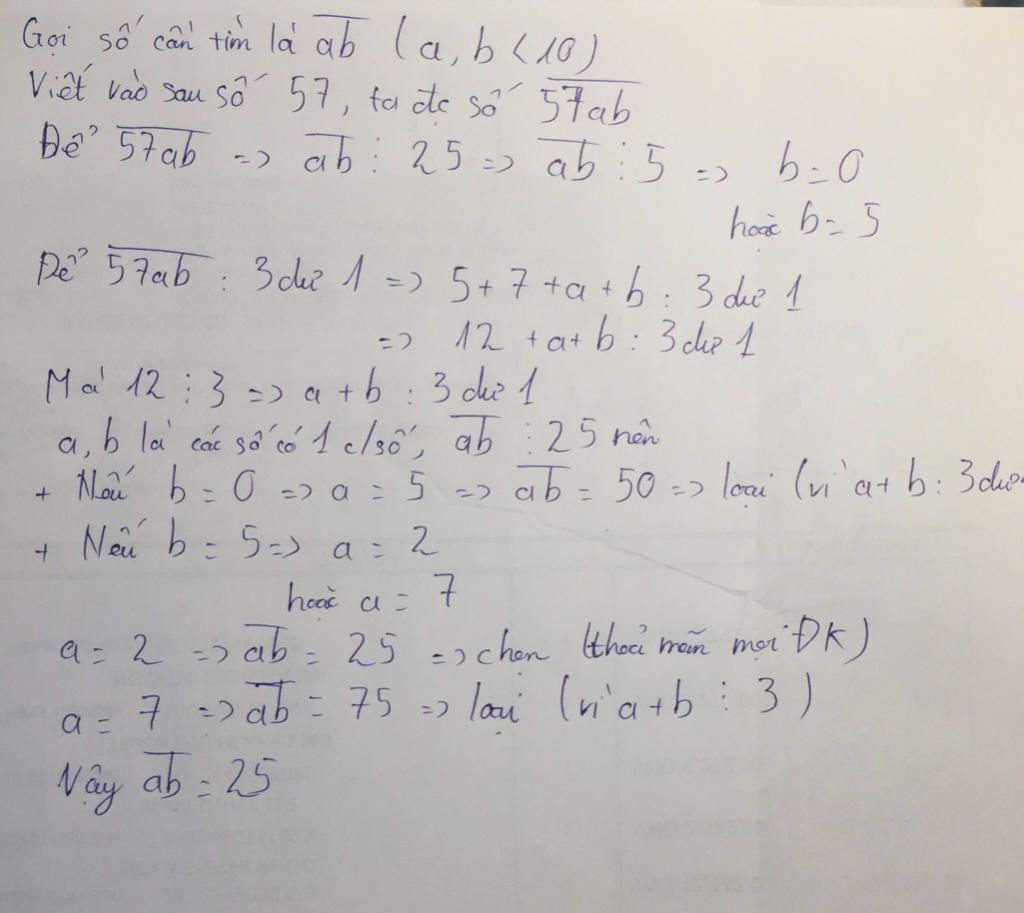 Gọi số cần tìm là ab (a, b < 10)
Viết vào sau số 57, ta đc số 57ab
Để 57ab => ab ⋮ 25 => ab ⋮ 5 => b = 0
hoặc b = 5
Để 57ab : 3 dư 1 => 5 + 7 + a + b : 3 dư 1
=> 12 + a + b : 3 dư 1
Mà 12 ⋮ 3 => a + b : 3 dư 1
a, b là các số có 1 c/số, ab ⋮ 25 nên
+ Nếu b = 0 => a = 5 => ab = 50 => loại (vì a + b : 3 dư
+ Nếu b = 5 => a = 2
hoặc a = 7
a = 2 => ab = 25 => chọn (thoả mãn mọi ĐK)
a = 7 => ab = 75 => loại (vì a + b ⋮ 3)
Vậy ab = 25